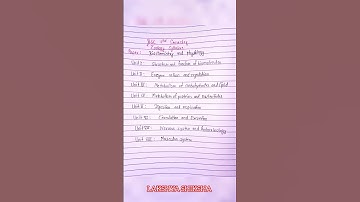 BSC 2nd Semester
Zoology Syllabus
Paper : Biochemistry and Physiology
Unit I : Structure and function of biomolecules
Unit II : Enzyme action and regulation
Unit III : Metabolism of carbohydrates and lipid
Unit IV : Metabolism of proteins and nucleotides
Unit V : Digestion and respiration
Unit VI : Circulation and Excretion
Unit VII : Nervous system and Endocrinology
Unit VIII : Muscular system
LAKSHYA SHIKSHA